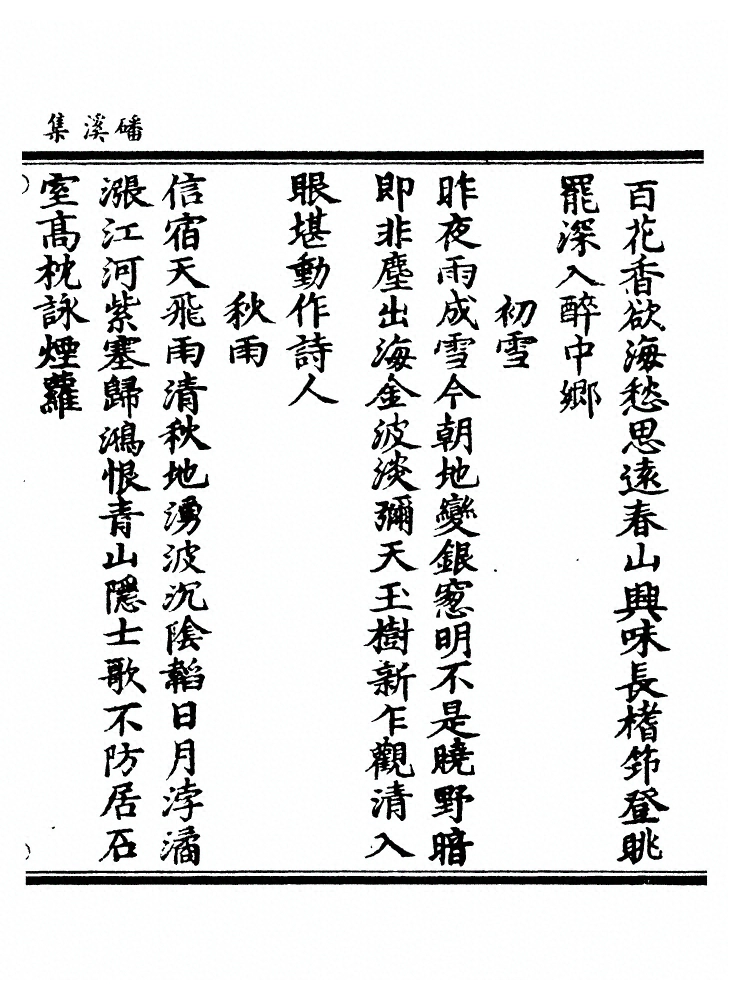 磻溪集
百花香欲海愁思遠春山興味長榰笻登眺
罷深入醉中鄉
初雪
昨夜雨成雪今朝地變銀窻明不是曉野暗
即非塵出海金波淡彌天玉樹新乍觀清入
眼堪動作詩人
秋雨
信宿天飛雨清秋地湧波沉陰韜日月浡潏
漲江河紫塞歸鴻恨青山隱士歌不防居石
室高枕詠煙蘿